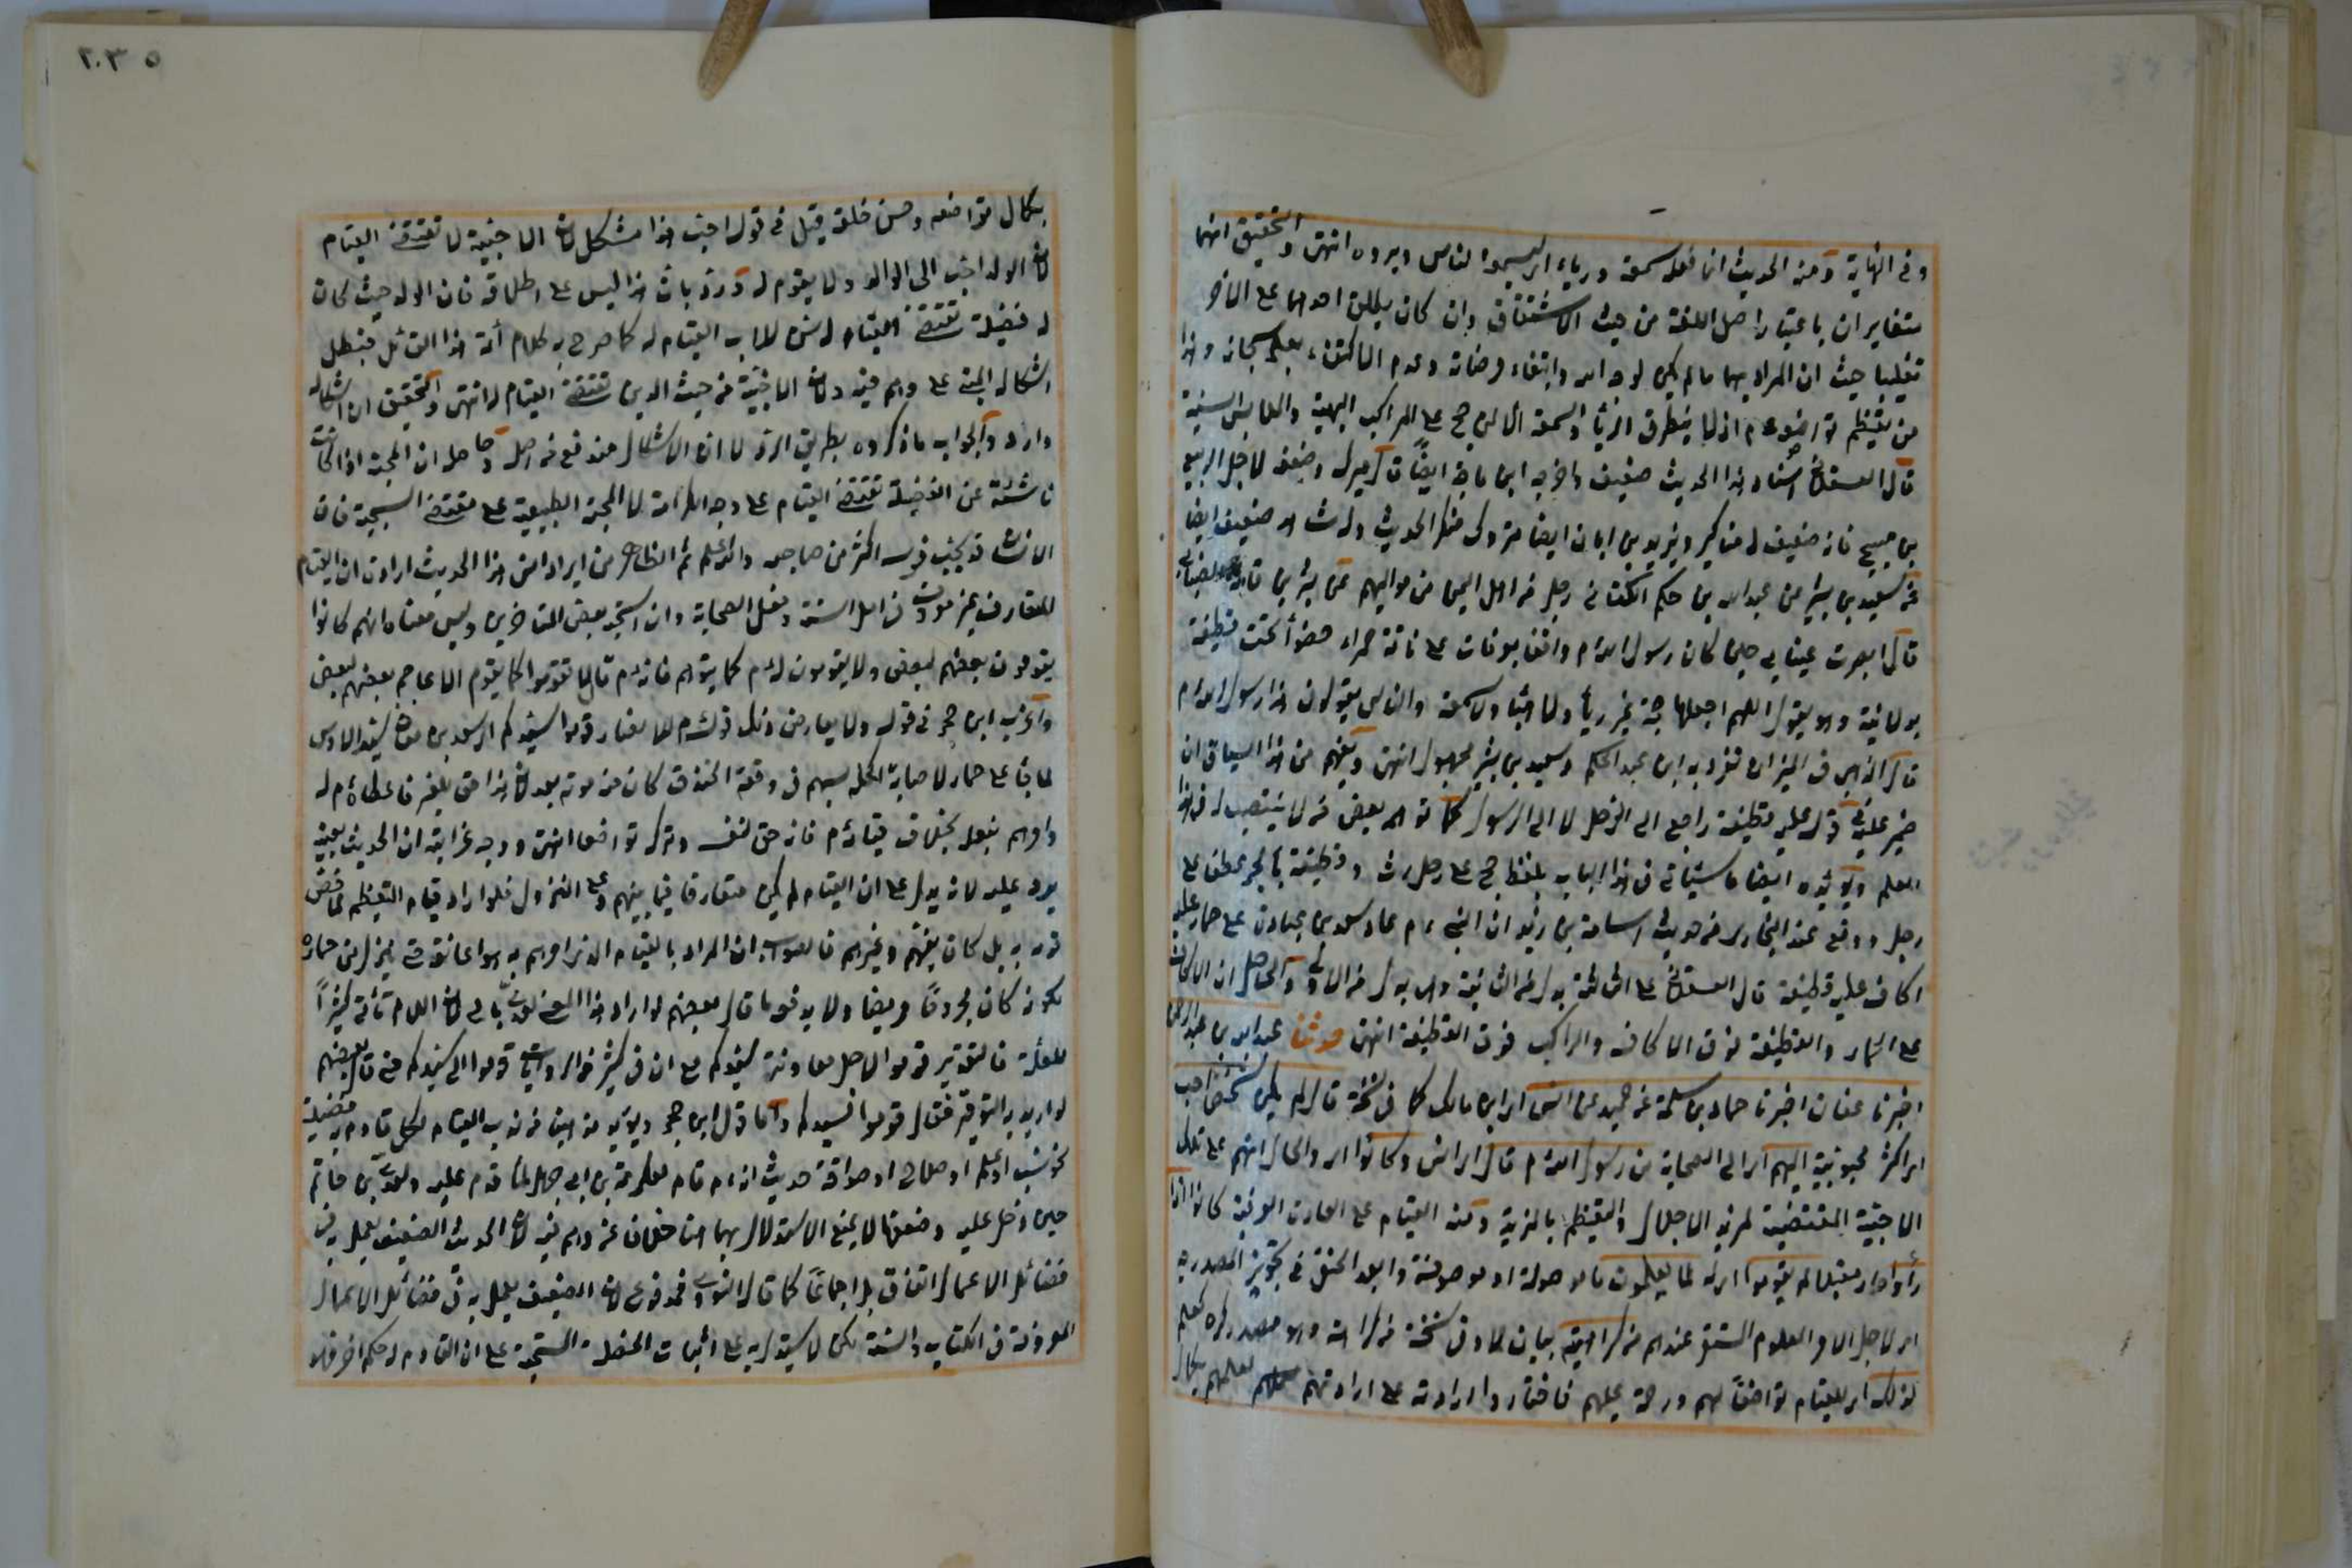 وفى النهاية ومنه الحديث انما فعله سمعة ورياء اى ليسمعه الناس ويروه انتهى والتحقيق انهما
متغايران باعتبار اصل اللغة من حيث الاشتقاق وان كان يطلق احدهما على الآخر
تغليبا حيث ان المراد بهما ما لم يكن لوجه الله وابتغاء مرضاته وعدم الاكتفاء بعلمه سبحانه وهذا
من تعظيم تواضعه م اذ لا يتطرق الريا والسمعة الا لمن حج على المراكب البهية والملابس السنية
قال العسقلانى اسناد هذا الحديث ضعيف واخرجه ابن ماجة ايضًا قال ميرك وضعفه لاجل الربيع
بن صبيح فانه ضعيف له مناكير ويزيد بن ابان ايضا متروك منكر الحديث وله شاهد ضعيف ايضا
عن سعيد بن بشير عن عبد الله بن حكم الكنانى رجل من اهل اليمن من مواليهم عن بشر بن قدامة الضبابى
قال ابصرت عيناى حبى كان رسول الله م واقفا بعرفات على ناقة حمراء قصواء تحته قطيفة
بولانية وهو يقول اللهم اجعلها حجة غير رياء ولا هباء ولا سمعة والناس يقولون هذا رسول الله م
قال الذهبى فى الميزان تفرد به ابن عبد الحكم وسعيد بن بشير مجهول انتهى ويفهم من هذا السياق ان
ضمير عليه فى قوله عليه قطيفة راجع الى الرحل لا الى الرسول كما توهم بعض من لا ينتصب له فى هذا
العلم ويؤيده ايضا ما سيأتى فى هذا الباب بلفظ حج على رحل رث وقطيفة بالجر عطف على
رحل ووقع عند البخارى من حديث اسامة بن زيد ان النبى م عاد سعد بن عبادة على حمار عليه
اكاف عليه قطيفة قال العسقلانى على الثالثة بدل عن الثانية وهى بدل من الاولى والحاصل ان الاكاف
على الحمار والقطيفة فوق الاكاف والراكب فوق القطيفة انتهى حدثنا عبد الله بن عبد الرحمن
اخبرنا عفان اخبرنا حماد بن سلمة عن حميد عن انس اى ابن مالك كما فى نسخة قال لم يكن شخص احب
اى اكثر محبوبية اليهم اى الى الصحابة من رسول الله م قال اى انس وكانوا اى والحال انهم على تلك
الاحبية المقتضية لمزيد الاجلال والتعظيم بالمزية ومنه القيام على العادة العرفية كانوا اذا
رأوه اى مقبلا لم يقوموا اى له لما يعلمون ما موصولة او موصوفة وابعد الحنفى فى تجويز المصدرية
اى لاجل الامر المعلوم المستقر عندهم من كراهيته بيان لما وفى نسخة من كراهته وهو مصدر كره كعلم
لذلك اى للقيام تواضعًا لهم ورحمة عليهم فاختاروا ارادته على ارادتهم لعلمهم بكمال
٢٠٣٥
بكمال تواضعه وحسن خلقه قيل فى قوله احب هذا مشكل لان الاحبية لا تقتضى القيام
لان الولد احب الى الوالد ولا يقوم له ورد بان هذا ليس على اطلاقه فان الولد حيث كان
له فضيلة تقتضى القيام له سن للاب القيام له كما صرح به كلام أئمة هذا القائل فبطل
اشكاله المبنى على وهم فيه ولان الاحبية من حيث الدين تقتضى القيام له انتهى والتحقيق ان اشكاله
وارد والجواب ما ذكروه بطريق الرد لا ان الاشكال مندفع من اصله وحاصله ان المحبة اذا كانت
ناشئة عن الفضيلة تقتضى القيام على وجه الكرامة لا المحبة الطبيعية على مقتضى السجية فان
الانسان قد يحب فرسه اكثر من صاحبه والله اعلم ثم الظاهر من ايراد انس هذا الحديث ارادة ان القيام
المتعارف غير معروف فى اصل السنة وفعل الصحابة وان استحبه بعض المتأخرين وليس معناه انهم كانوا
يقومون بعضهم لبعض ولا يقومون له م كما يتوهم فانه م قال لا تقوموا كما يقوم الاعاجم بعضهم لبعض
واغرب ابن حجر فى قوله ولا يعارض ذلك قوله م للانصار قوموا لسيدكم اى سعد بن معاذ سيد الاوس
لما جاء على حمار لاصابة اكحله بسهم فى وقعة الخندق كان منه موته بعد لان هذا حق للغير فاعطاه م له
وامرهم بفعله بخلاف قيامه م فانه حق لنفسه وتركه تواضعا انتهى ووجه غرابته ان الحديث بعينه
يرد عليه لانه يدل على ان القيام لم يكن متعارفا فيما بينهم وعلى التنزل فلو اراد قيام التعظيم لما خص
قومه به بل كان يعمهم وغيرهم فالصواب ان المراد بالقيام الذى امرهم به هو اعانته حتى ينزل من حماره
لكونه كان مجروحًا مريضا ولا يدفعه ما قال بعضهم لو اراد هذا المعنى لعدى بالى لان اللام تأتى كثيرًا
للعلة فالتقدير قوموا لاجل معاونة سيدكم مع ان فى كثير من الروايات قوموا الى سيدكم حتى قال بعضهم
لو اريد به التوقير فقال قوموا لسيدكم واما قول ابن حجر ويؤيد مذهبنا من ندب القيام لكل قادم به فضيلة
نحو نسب او علم او صلاح او صداقة حديث انه م قام لعكرمة بن ابى جهل لما قدم عليه ولعدى بن حاتم
حين دخل عليه وضعفهما لا يمنع الاستدلال بهما هنا خلافا لمن وهم فيه لان الحديث الضعيف يعمل به فى
فضائل الاعمال اتفاقا بل اجماعًا كما قال النووى فمدفوع لان الضعيف يعمل به فى فضائل الاعمال
المعروفة فى الكتاب والسنة لكن لا يستدل به على اثبات الخصلة المستحبة على ان القادم له حكم آخر فلا